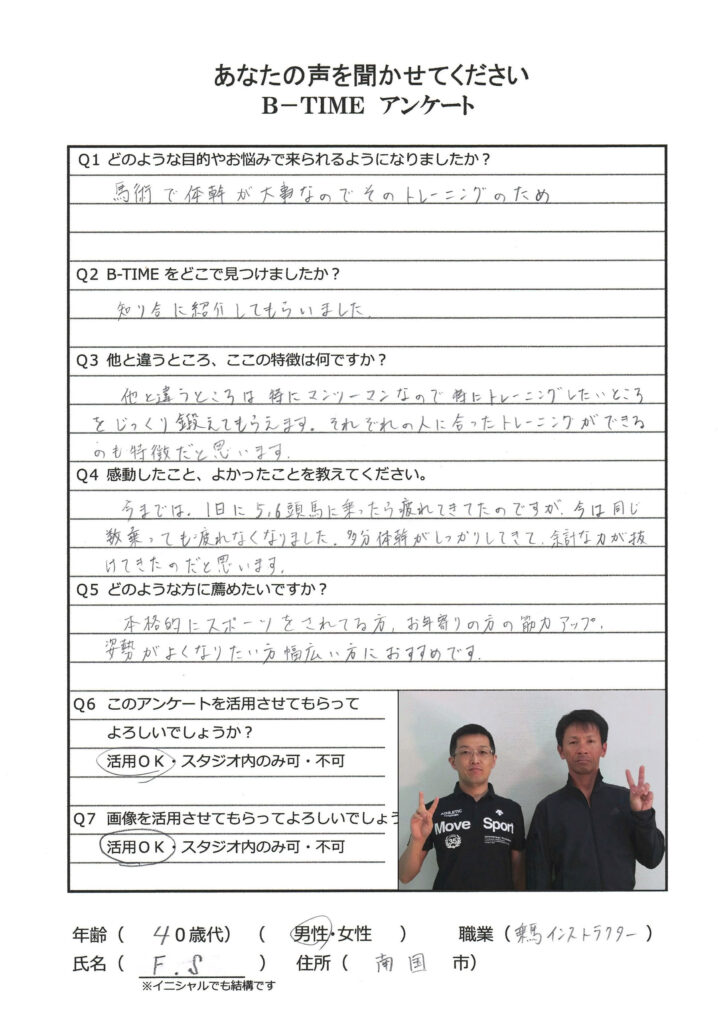 あなたの声を聞かせてください
B－TIME アンケート
Q1 どのような目的やお悩みで来られるようになりましたか？
馬術で体幹が大事なのでそのトレーニングのため
Q2 B-TIME をどこで見つけましたか？
知り合に紹介してもらいました。
Q3 他と違うところ、ここの特徴は何ですか？
他と違うところは特にマンツーマンなので特にトレーニングしたいところ
をじっくり鍛えてもらえます。それぞれの人に合ったトレーニングができる
のも特徴だと思います。
Q4 感動したこと、よかったことを教えてください。
今までは、1日に5,6頭馬に乗ったら疲れてきてたのですが、今は同じ
数乗っても疲れなくなりました。多分体幹がしっかりしてきて、余計な力が抜
けてきたのだと思います。
Q5 どのような方に薦めたいですか？
本格的にスポーツをされてる方、お年寄りの方の筋力アップ、
姿勢がよくなりたい方幅広い方におすすめです。
Q6 このアンケートを活用させてもらって
よろしいでしょうか？
活用ＯＫ・スタジオ内のみ可・不可
Q7 画像を活用させてもらってよろしいでしょう
活用ＯＫ・スタジオ内のみ可・不可
Move Sport
年齢（ 40歳代） （ 男性・女性 ） 職業（乗馬インストラクター）
氏名（ F.S ） 住所（ 南国 市）
※イニシャルでも結構です